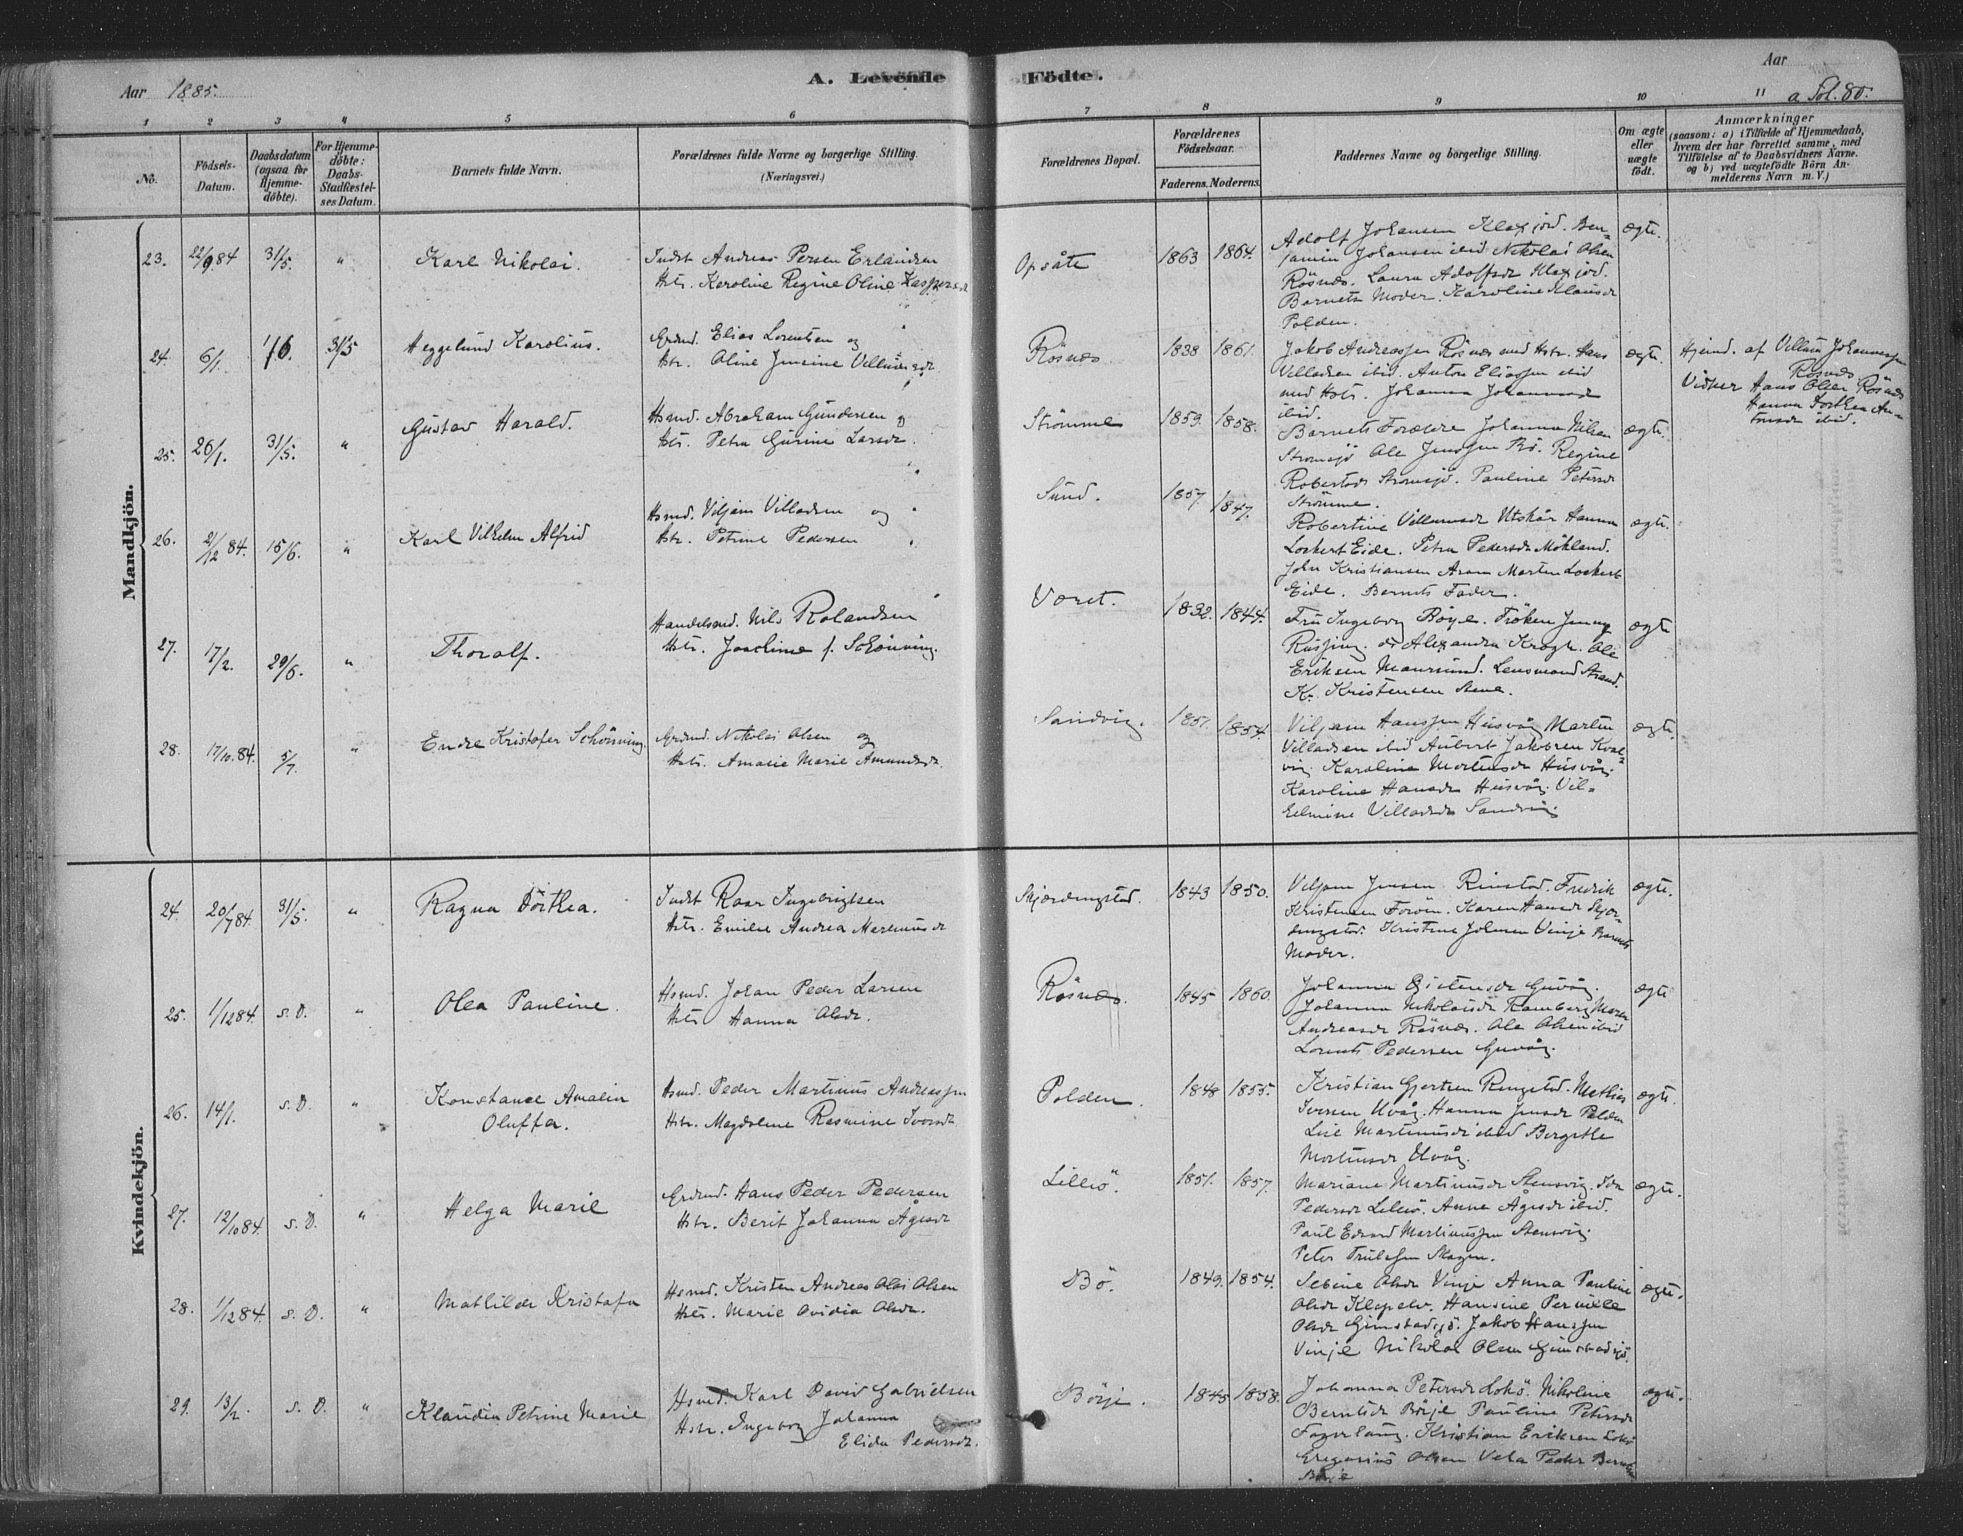 Aar 1885.
A. Levende Födte.
Aar
a Fol. 80.
1 2 3 4 5 6 7 8 9 10 11
No.
Födsels-
Datum.
Daabsdatum
(ogsaa for
Hjemme-
döbte).
For Hjemme-
döbte:
Daabs-
Stadfæstel-
ses Datum.
Barnets fulde Navn.
Forældrenes fulde Navne og borgerlige Stilling.
(Næringsvei.)
Forældrenes Bopæl.
Forældrenes
Födselsaar.
Faderens. Moderens.
Faddernes Navne og borgerlige Stilling.
Om ægte
eller
uægte
födt.
Anmærkninger
(saasom: a) i Tilfælde af Hjemmedaab,
hvem der har forrettet samme, med
Tilföielse af to Daabsvidners Navne.
og b) ved uægtefödte Börn An-
melderens Navn m. V.)
Mandkjön.
23. 22/9 84 31/5. " Karl Nikolai.
Indst Andreas Persen Erlandsen
Hstr. Karoline Regine Oline Kaspersdr
Opsåte 1863 1864.
Adolf Johansen Klaxjord. Ben-
jamin Johansen ibid Nikolai Olsen
Rösnæs. Laura Adolfsdr Klaxjord.
Barnets Moder. Karoline Klausdr
Polden.
ægte.
24. 6/1. 1/6. 31/5 Heggelund Karolius.
Grdmd. Elias Lorentsen og
Hstr. Oline Jensine Villumsdr
Rösnæs 1838 1861.
Jakob Andreassen Rösnæs med Hstr. Hans
Villadsen ibid. Anton Eliassen ibid
med Hstr. Johanna Johannesdr
ibid.
ægte.
Hjemd. af Villum Johannessen
Rösnæs
Vidner Hans Olsen Rösnæs
Hanna Dorthea An-
tonsdr ibid.
25. 26/1. 31/5. " Gustav Harald.
Hsmd. Abraham Gundersen og
Hstr. Petra Gurine Larsdr.
Strömme 1859. 1858.
Barnets Forældre Johannes Nilsen
Strömsjö Ole Jensen Bö. Regine
Robertsdr Strömsjö. Pauline Petersdr
Strömme.
ægte.
26. 2/12 84. 15/6. " Karl Vilhelm Alfrid
Hsmd. Viljam Villadsen og
Hstr. Petrine Pedersen
Sund. 1857 1847.
Robertine Villumsdr Utskår Hanna
Lockert Eide. Petra Pedersdr Mökland.
John Kristiansen Morten Lockert
Eide. Barnets Fader.
ægte.
27. 17/2. 29/6. " Thoralf.
Handelsmd. Nils Rolandsen
Hstr. Joachime f. Schönning.
Været. 1832. 1844.
Fru Ingeborg Böye. Fröken Jenny
Alexandra Krogh. Ole
Eriksen Maursund. Lensmand Strand.
K. Kristensen Stene.
ægte
28. 17/10.84. 5/7. " Endre Kristofer Schönning
Grdmd. Nikolai Olsen og
Hstr. Amalie Marie Amundsdr.
Sandvig. 1851. 1854.
Viljam Hanssen Husvåg Martin
Villadsen ibid Aubert Jakobsen Kval-
vig. Karoline Mortensdr Husvåg.
Karoline Hansdr Husvåg. Vil-
helmine Villadsdr Sandvig.
ægte.
Kvindekjön.
24. 20/7 84. 31/5. " Ragna Dorthea.
Indst Roar Ingebrigtsen
Hstr. Emilie Andrea Maremusdr
Skjærdingstad. 1843 1850.
Viljam Jensen Rinstad. Fredrik
Kristensen Foröen. Karen Hansdr Skjær-
dingstad. Kristine Johnsen Vinje Barnets
Moder.
ægte.
25. 1/12 84. s. D. " Olea Pauline.
Hsmd. Johan Peder Larsen
Hstr Hanna Olsdr.
Rösnæs. 1845 1860.
Johanna Guvåg.
Johanna Nikolaisdr Ramberg Maren
Andreasdr Rösnæs. Ole Olsen ibid
Lorents Pedersen Guvåg.
ægte
26. 14/1. s. D. " Konstance Amalia
Oluffa.
Hsmd. Peder Martinus Andreassen
Hstr. Magdalene Rasmine Iversdr
Polden. 1848 1855.
Kristian Gjertsen Ringstad. Mathias
Iversen Uvåg. Hanna Jensdr Polden
Lise Martinusdr ibid Bergitte
Mortensdr Uvåg.
ægte.
27. 12/10 84. s. D. " Helga Marie
Grdmd. Hans Peder Pedersen
Hstr. Berit Johanna Ågesdr
Lilleö. 1851. 1857.
Mariane Martinusdr Stensvig. Ida
Pedersdr Lilleö. Anna Ågesdr ibid.
Paul Edvard Martinussen Stensvig.
Peter Trulssen Skagen.
ægte.
28. 1/12 84. s. D. " Mathilde Kristofa
Hsmd. Kristen Andreas Olai Olsen
Hstr. Marie Ovidia Olsdr.
Bö. 1849. 1854.
Sebine Olsdr Vinje Anna Pauline
Olsdr Klepelv. Hansine Pernille
Olsdr Gimstadsjö. Jakob Hanssen
Vinje Nikolai Olsen Gimstadsjö.
ægte.
29. 13/2. s. D. " Klaudia Petrine Marie
Hsmd. Karl David Gabrielsen
Hstr. Ingeborg Johanna
Elida Pedersdr.
Börje. 1845 1858.
Johanna Petersdr Lokö. Nikoline
Berntsdr Börje Pauline Petersdr
Kristian Eriksen Lokö
Gregorius Olsen Peder Berntsen
Börje
ægte.